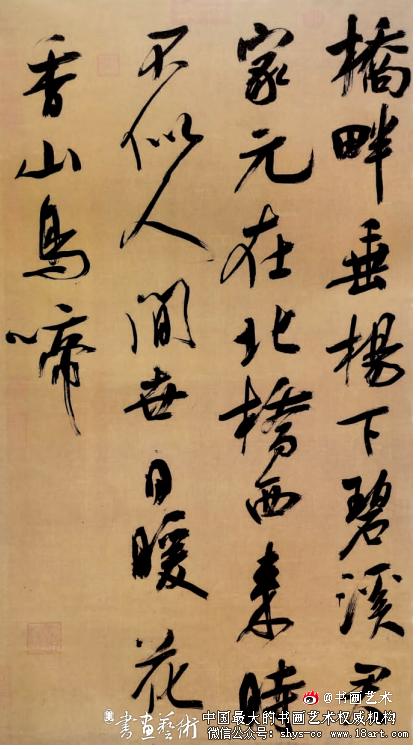 橋畔垂楊下碧溪君
家元在北橋西来時
不似人間世日暖花
香山鳥啼
書畫藝術
@书画艺术
中国最大的书画艺术权威机构
微信公众号: shys-cc www.18art.com